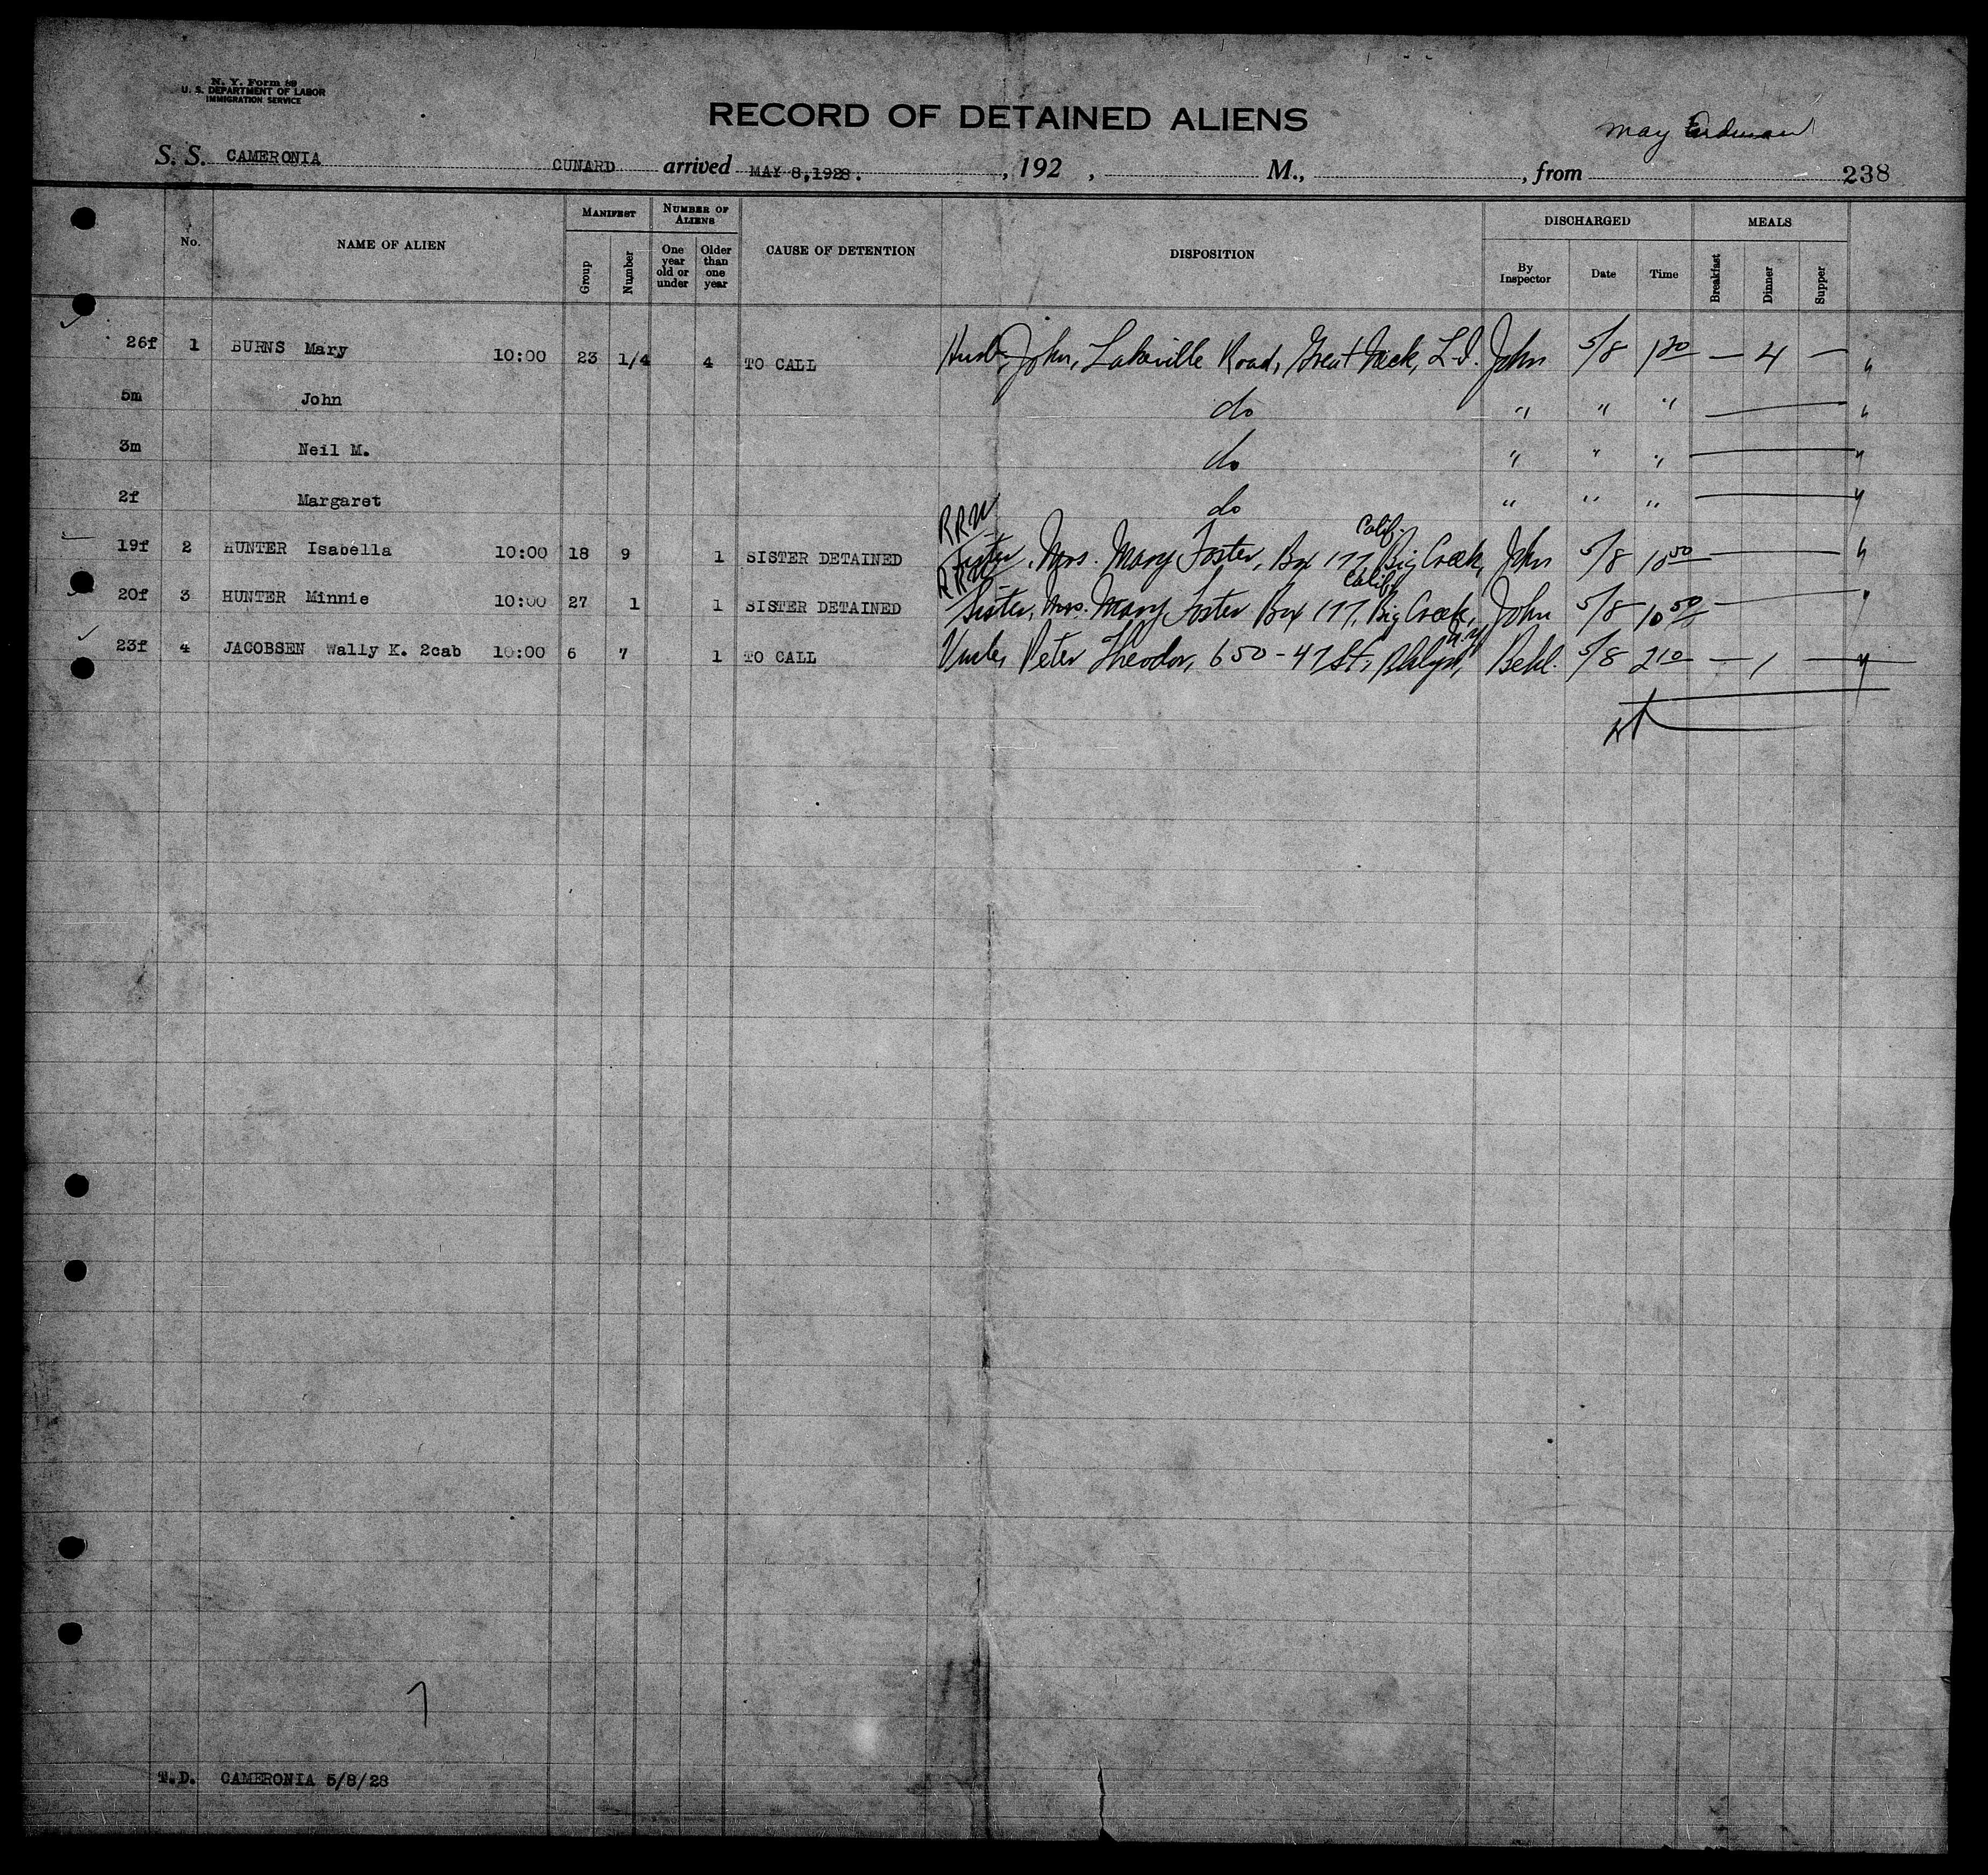 N. Y. Form 89
U. S. DEPARTMENT OF LABOR
IMMIGRATION SERVICE
RECORD OF DETAINED ALIENS
May
S. S. CAMERONIA CUNARD arrived MAY 8,1928. , 192 , M., , from 238
No. NAME OF ALIEN MANIFEST Group Number NUMBER OF ALIENS One year old or under Older than one year CAUSE OF DETENTION DISPOSITION DISCHARGED By Inspector Date Time MEALS Breakfast Dinner Supper
26f 1 BURNS Mary 10:00 23 1/4 4 TO CALL Husb, John, Lakeville Road, Great Neck, L.I. John 5/8 1 20 — 4 — "
5m John do " " " — "
3m Neil M. do " " " — "
2f Margaret do " " " — "
RRW Calif.
19f 2 HUNTER Isabella 10:00 18 9 1 SISTER DETAINED Sister, Mrs. Mary Foster, Box 177, Big Creek, John 5/8 10 50 — "
RRW Calif.
20f 3 HUNTER Minnie 10:00 27 1 1 SISTER DETAINED Sister, Mrs. Mary Foster Box 177, Big Creek, John 5/8 10 50 — "
N.Y.
23f 4 JACOBSEN Wally K. 2cab 10:00 6 7 1 TO CALL Uncle, Peter Theodor, 650-47 St., Bklyn, 5/8 2 10 — 1 — "
7
T.D. CAMERONIA 5/8/28